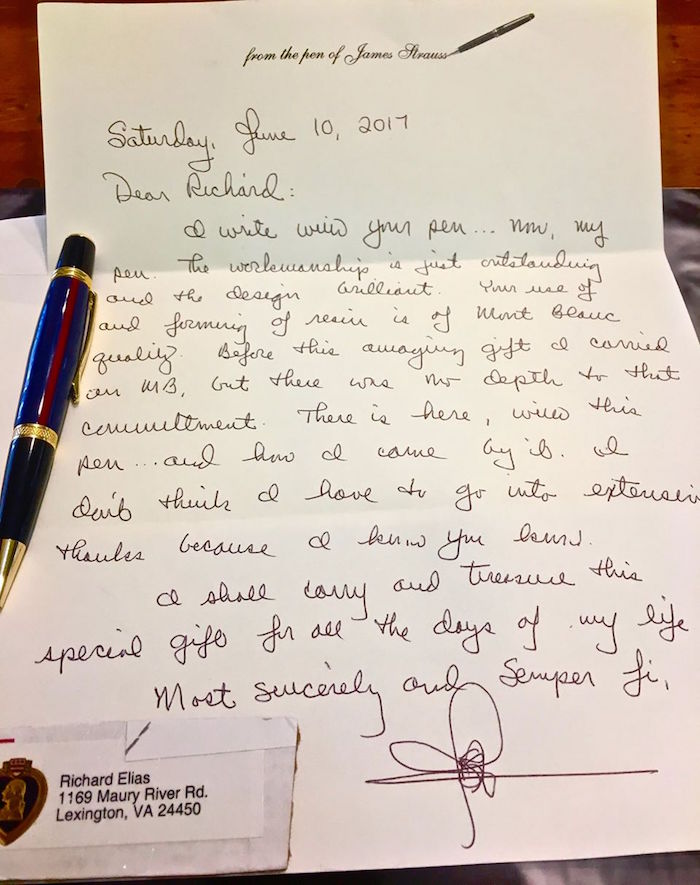 from the pen of James Strauss
Saturday, June 10, 2017
Dear Richard:
I write with your pen... now, my
pen. The workmanship is just outstanding
and the design brilliant. Your use of
and forming of resin is of Mont Blanc
quality. Before this amazing gift I carried
an MB, but there was no depth to that
committment. There is here, with this
pen... and how I came by it. I
don't think I have to go into extensive
thanks because I know you know.
I shall carry and treasure this
special gift for all the days of my life
Most sincerely and Semper fi,
Richard Elias
1169 Maury River Rd.
Lexington, VA 24450